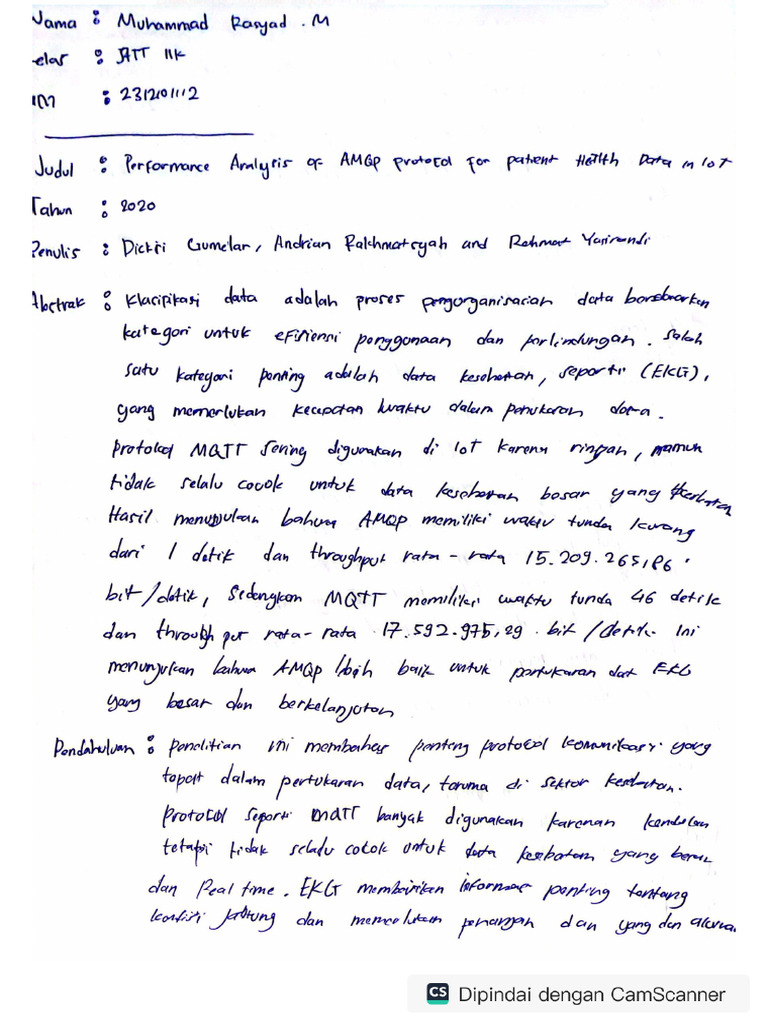 Nama : Muhammad Rasyad . M
elas : JATT 11K
IM : 231201112
Judul : Performance Analysis of AMQP protocol for patient Health Data in IoT
Tahun : 2020
Penulis : Dickri Gumelar, Andrian Rakhmatsyah and Rahmat Yasirandi
Abstrak : Klasifikasi data adalah proses pengorganisasian data berdasarkan
kategori untuk efisiensi penggunaan dan perlindungan. Salah
satu kategori penting adalah data kesehatan, seperti (EKG),
yang memerlukan kecepatan waktu dalam penukaran data.
protokol MQTT sering digunakan di IoT karena ringan, namun
tidak selalu cocok untuk data kesehatan besar yang
Hasil menunjukan bahwa AMQP memiliki waktu tunda kurang
dari 1 detik dan throughput rata-rata 15.209.265,86
bit/detik, Sedangkan MQTT memiliki waktu tunda 46 detik
dan through put rata-rata 17.592.975,29 bit/detik. Ini
menunjukan bahwa AMQP lebih baik untuk pertukaran dat EKG
yang besar dan berkelanjutan
Pendahuluan : Penelitian ini membahas penting protocol komunikasi yang
tepat dalam pertukaran data, taruma di sektor kesehatan.
Protocol seperti MQTT banyak digunakan karenan
tetapi tidak selalu cocok untuk data kesehatan yang besar
dan Real time. EKG memberikan informasi penting tentang
kondisi jantung dan memerlukan dan yang dan akurat
CS Dipindai dengan CamScanner